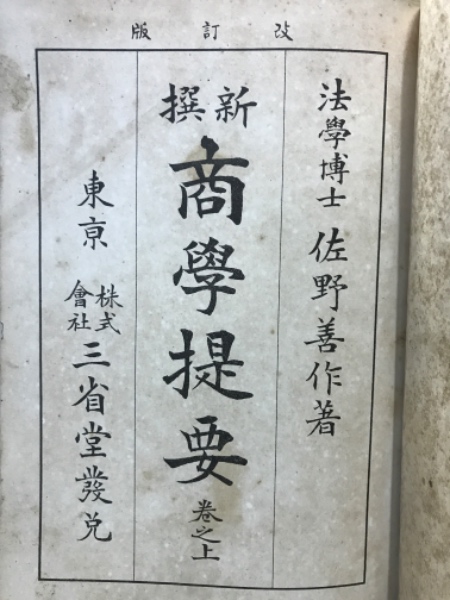 改訂版
法學博士 佐野善作著
新撰
商學提要 卷之上
東京 株式會社 三省堂發兌